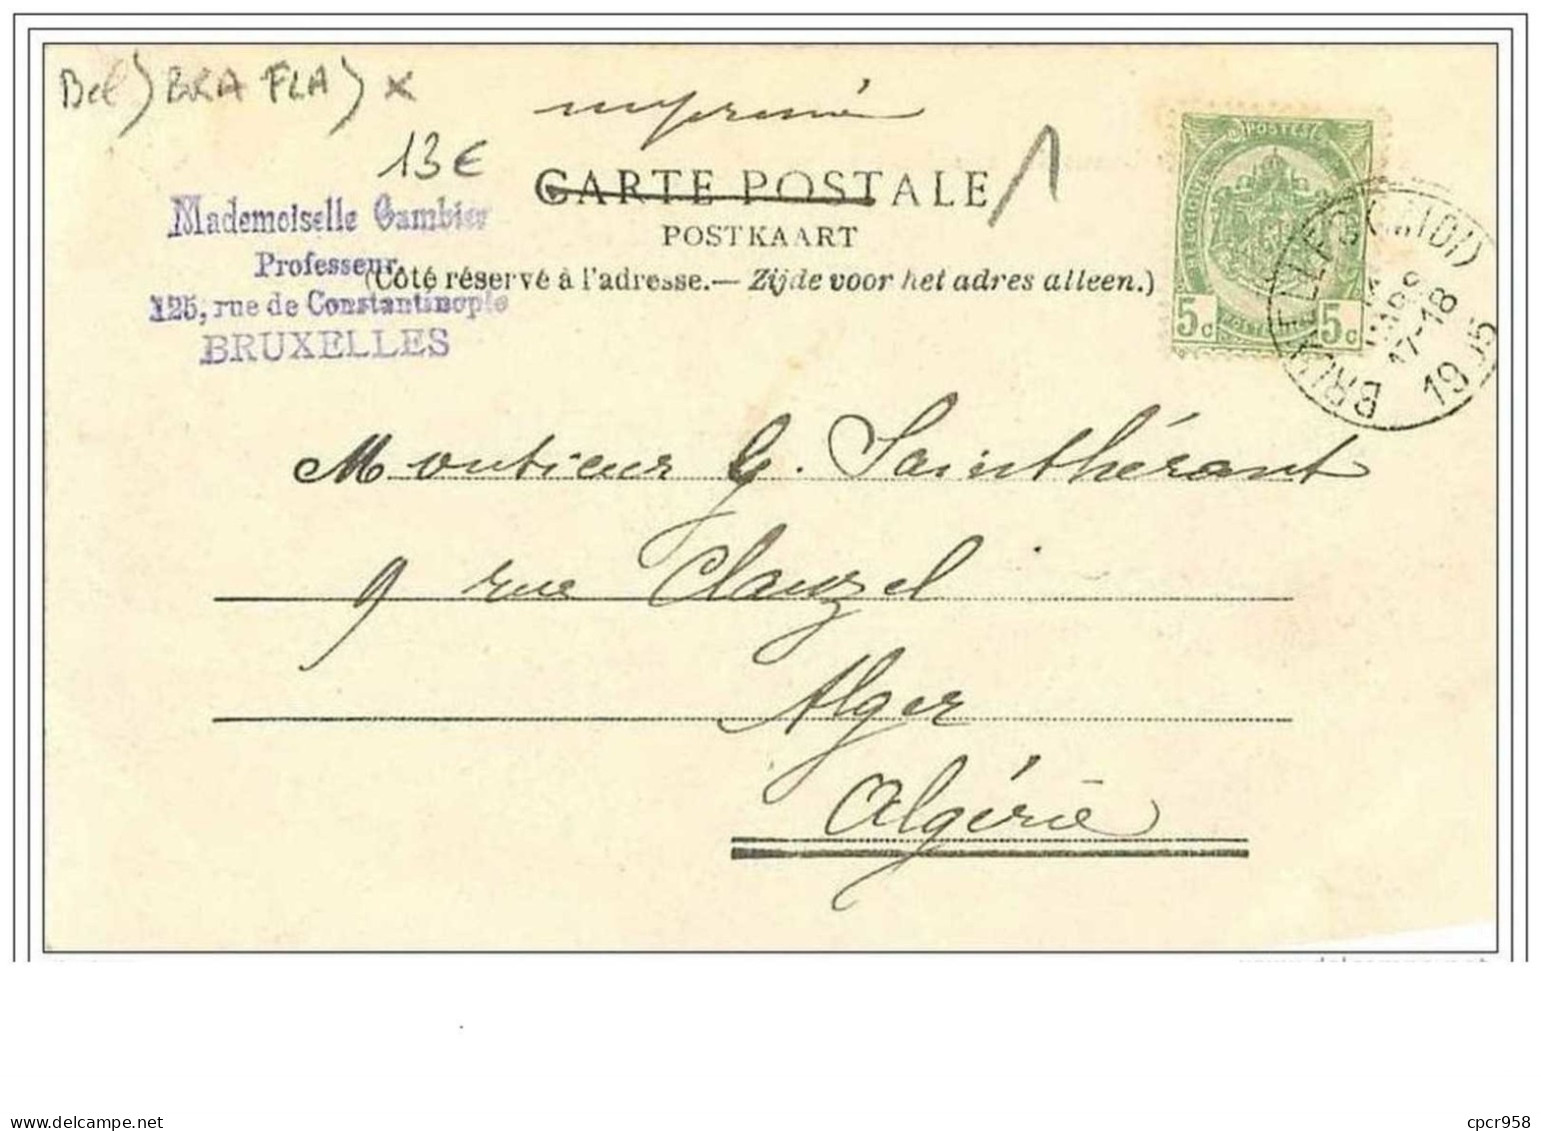 Bel) BRA FLA) x
13€
imprimé
1
CARTE POSTALE
POSTKAART
(Côté réservé à l'adresse.— Zijde voor het adres alleen.)
Mademoiselle Gambier
Professeur
125, rue de Constantinople
BRUXELLES
POSTES
BELGIQUE
5c 5c
BRUXELLES (MIDI)
MARS
17-18
1905
Monsieur G. Sainthérant
9 rue Clauzel
Alger
Algérie
https://www.delcampe.net
cpcr958